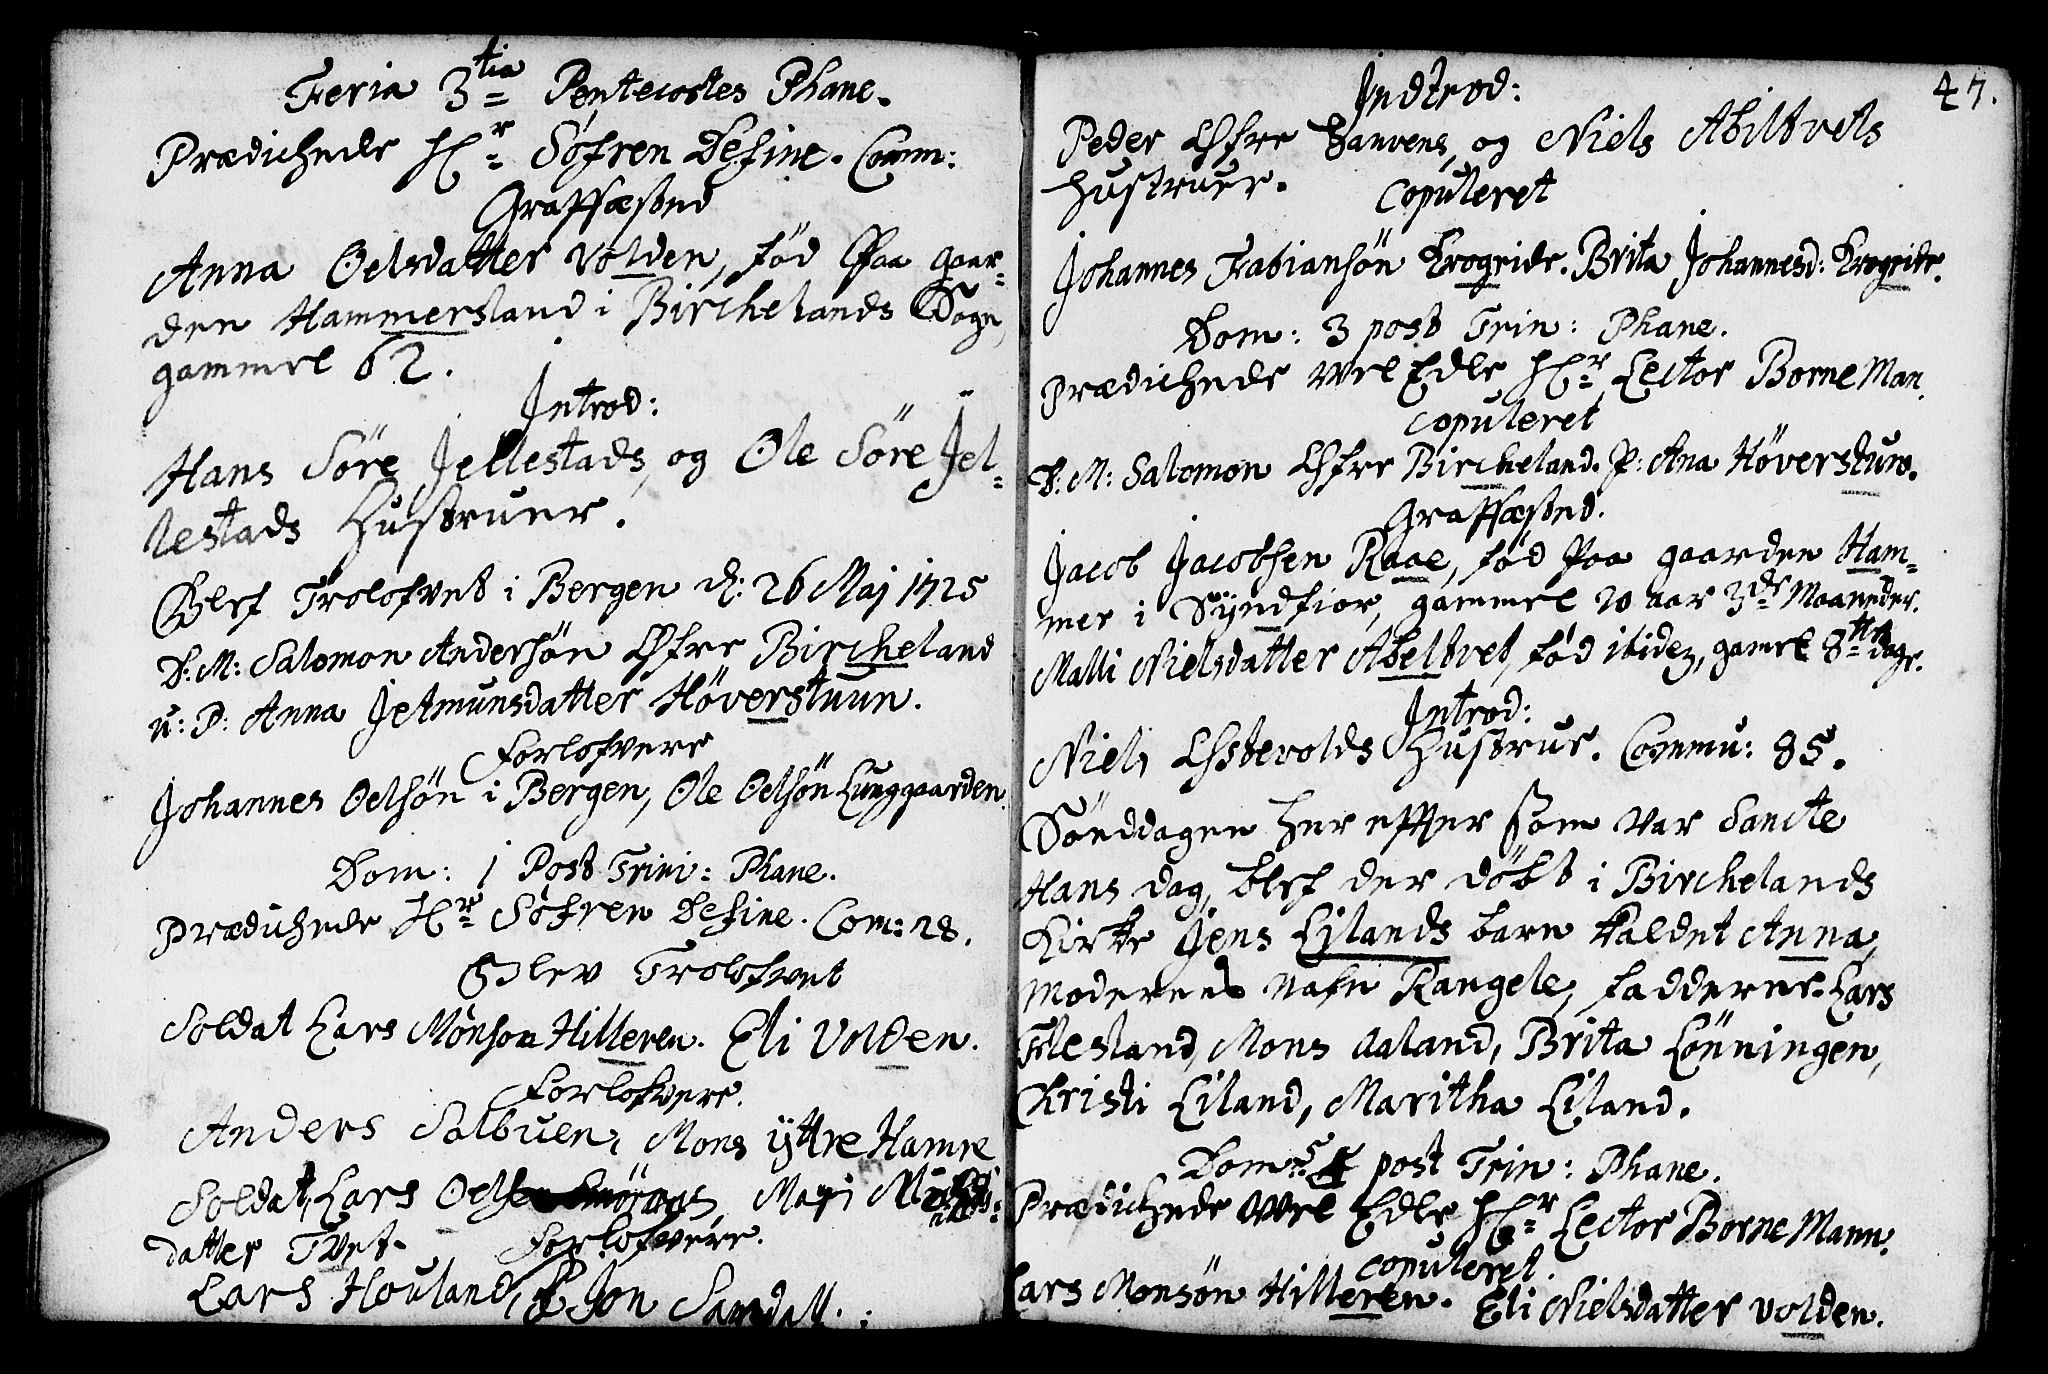 Feria 3tia Pentecostes Phane.
Prædichede Hr Söfren Define. Comm:
Graffæsted
Anna Oelsdatter Volden, född Paa gaar-
den Hammersland i Birchelands Sogn,
gammel 62.
Introd:
Hans Söre Jellestads, og Ole Söre Jel-
lestads Hustruer.
Blef Trolofvet i Bergen d: 26 Maj 1725
D: M: Salomon Andersön Öfre Bircheland
u: P: Anna Jetmunsdatter Höverstuun.
Forlofvere
Johannes Oelsön i Bergen, Ole Oelsön Lunggaarden.
Dom: 1 Post Trini: Phane.
Prædichede Hr Söfren Define. Com: 28.
Blev Trolofvet
Soldat Lars Mönson Hilleren. Eli Volden.
Forlofvere.
Anders Solbuen, Mons ÿttre Hamre
Soldat, Lars Oelsen Mari
datter Tvet. Forlofvere.
Lars Houland, Jon Sandall.
47.
Indtrod:
Peder Öfre Sanvens, og Niels Abildvets
hustruer.
Copuleret
Johannes Fabiansön Krogeide. Brita Johannesd: Krogeide.
Dom: 3 post Trin: Phane.
Prædichede Vel Edle Hr Lector BorneMan.
Copuleret
D: M: Salomon Öfre Bircheland. P: Ana Höverstuun.
Graffæsted.
Jacob Jacobsen Raae, föd Paa gaarden Ham-
mer i Syndfior, gammel 20 aar 3de Maaneder.
Malli Nielsdatter Abeltvet, föd ibidem, gamel 8tte dage.
Introd:
Niels Östevolds Hustrue. Commu: 85.
Sönddagen her effter som var Sancte
Hans dag, blef der döbt i Birchelands
Kirke Jens Lilands barn kaldet Anna,
Moderens nafn Rangele, fadderne. Lars
Flesland, Mons Aaland, Brita Lönningen,
Kristi Liland, Maritha Liland.
Dom: 5 post Trin: Phane.
Prædichede Vel Edle Hr Lector BorneMann.
Copuleret.
Lars Monsön Hilleren. Eli Nielsdatter Volden.